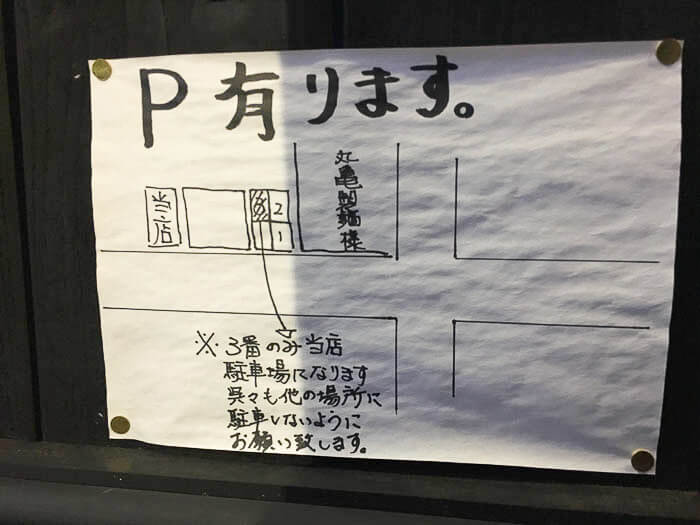 P有ります。
当店
3
2
1
丸亀製麺様
※3番のみ当店
駐車場になります
呉々も他の場所に
駐車しないように
お願い致します。